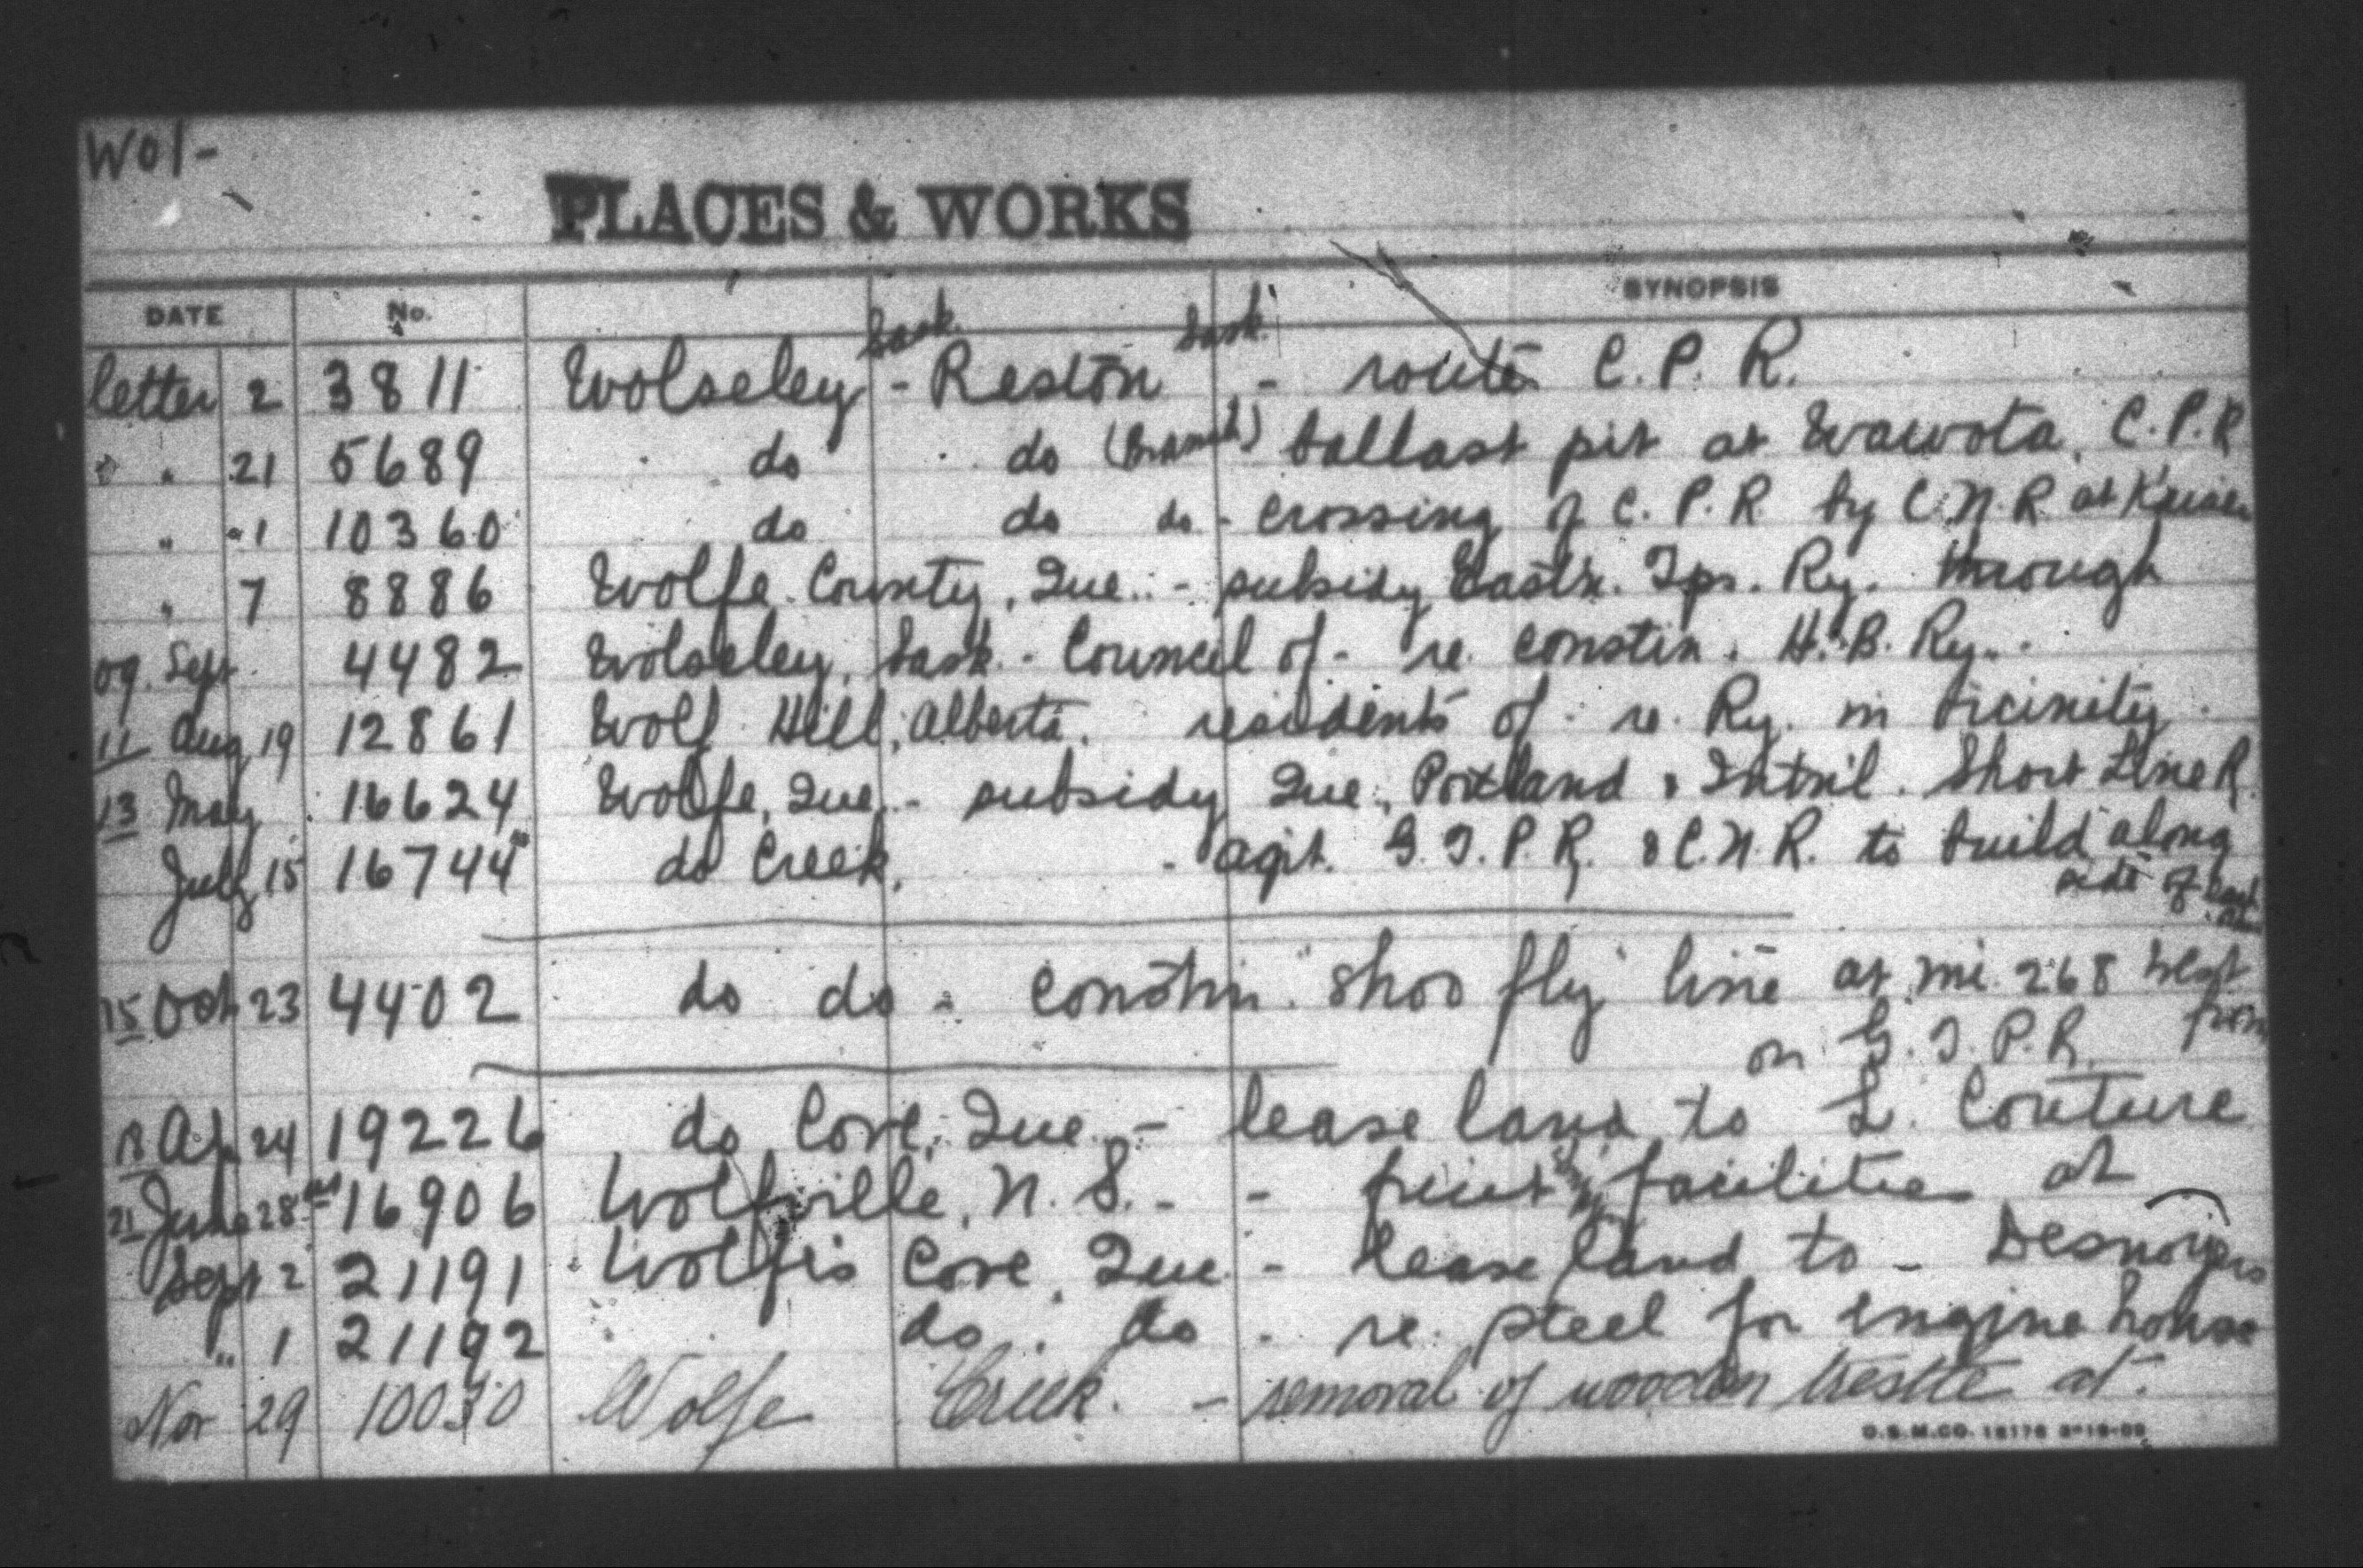 Wol-
PLACES & WORKS
DATE No. SYNOPSIS
letter 2 3811 Wolseley Sask. - Reston Sask. - route C. P. R.
" " 21 5689 do do (Branch) ballast pit at Wawota, C.P.R
" "1 10360 do do do - crossing of C. P. R. by C.N.R. at
" 7 8886 Wolfe County, Que. - subsidy Eastn. Tps. Ry. through
09. Sept 4482 Wolseley, Sask. - Council of - re constin. H. B. Ry.
11 Aug 19 12861 Wolf Hill, Alberta. residents of - re Ry. in vicinity
13 May 16624 Wolfe, Que. - subsidy Que., Portland & Intnl. Short Line R.
July 15 16744 do Creek. - agrt. G. T. P. R. & C. N. R. to build along
side of
15 Oct 23 4402 do do - constin. "shoo fly" line at mi. 268 West
from
on G. T. P. R.
18 Ap 24 19226 do Cove, Que. - lease land to L. Couture
21 June 28 16906 Wolfville, N. S. - - fruit facilities at
Sept 2 21191 Wolfe's Cove, Que. - lease land to - Desnoyers
" 1 21192 do. do - re. steel for engine house
Nov 29 10030 Wolfe Creek. - removal of wooden trestle at.
O.S.M.CO. 18176 2-19-09